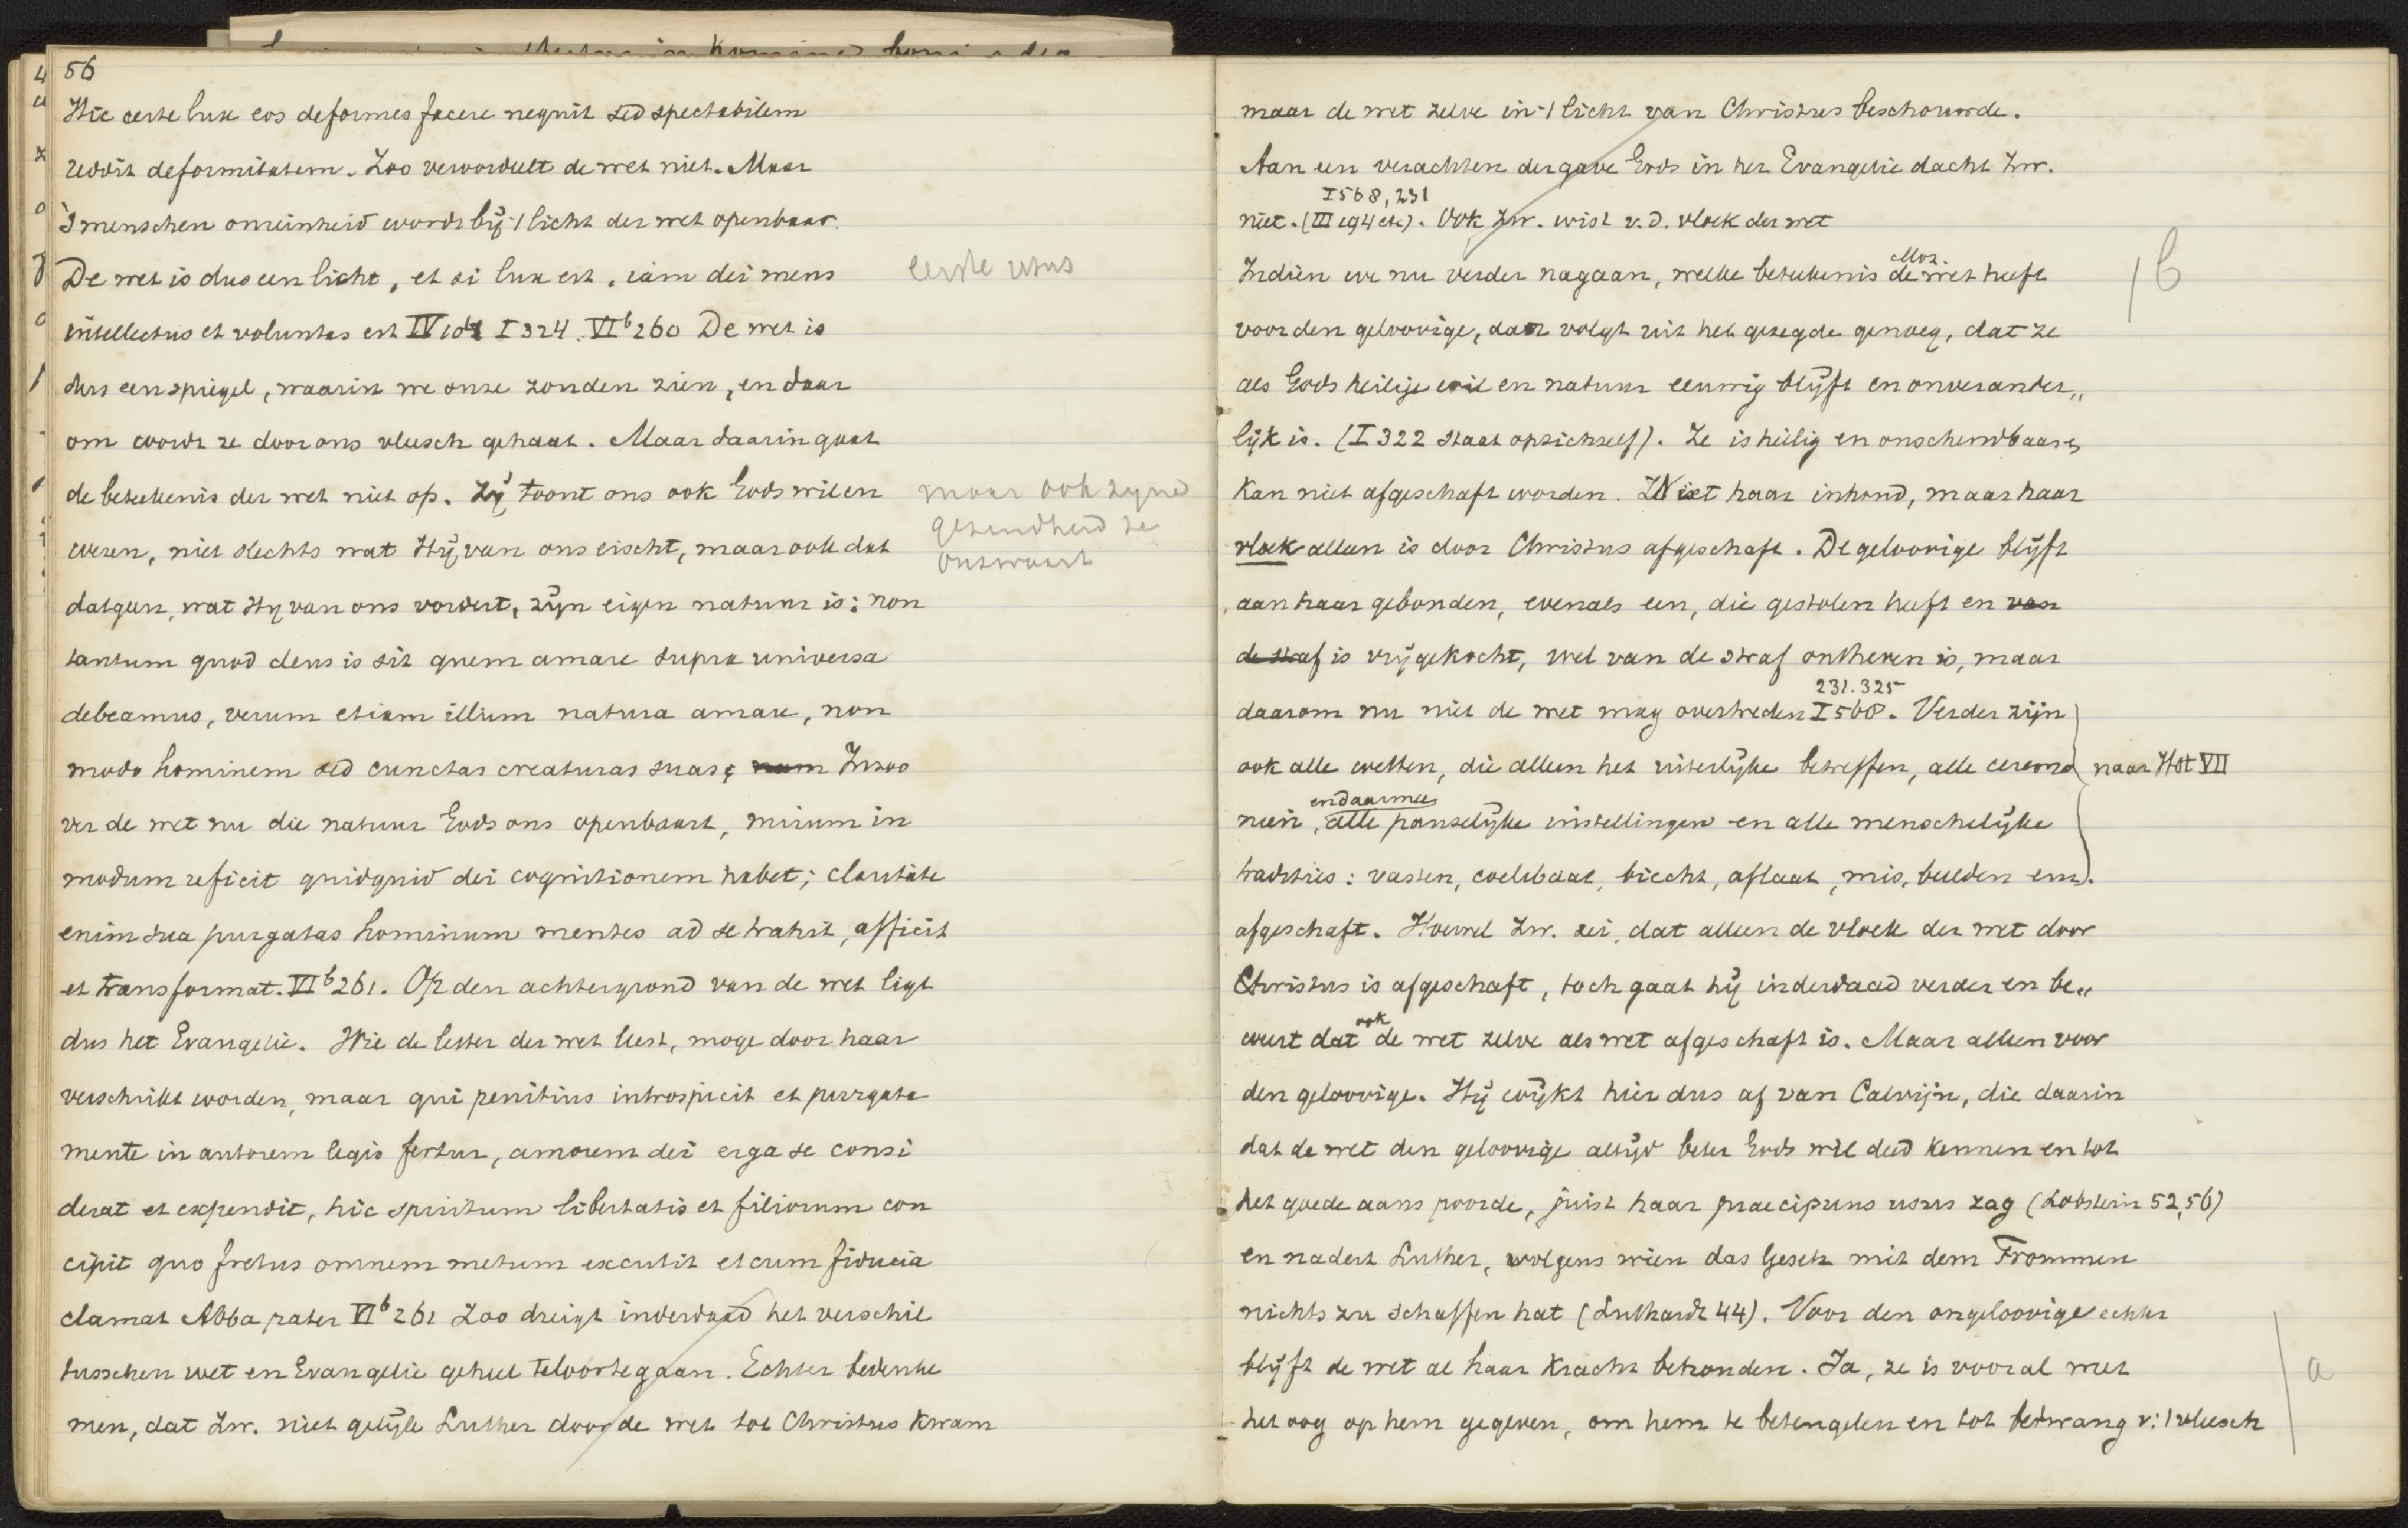 56
Hic certe lux eos deformes facere nequit sed spectabilem
reddit deformitatem. Zoo veroordeelt de wet niet. Maar
's menschen onreinheid wordt bij 't licht der wet openbaar.
De wet is dus een licht, et si lux est, iam dei mens
eerste usus
intellectus et voluntas est IV 102 I 324. VI b 260 De wet is
dus een spiegel, waarin we onze zonden zien, en daar
om wordt ze door ons vleesch gehaat. Maar daarin gaat
de beteekenis der wet niet op. Zij toont ons ook Gods wil en
maar ook zijne
gezindheid te
onswaart
wezen, niet slechts wat Hij van ons eischt, maar ook dat
datgeen, wat Hij van ons vordert, zijn eigen natuur is: non
tantum quod deus is sit quem amare supra universa
debeamus, verum etiam illum natura amare, non
modo hominem sed cunctas creaturas suas; nam Inzoo
ver de wet nu die natuur Gods ons openbaart, mirum in
modum reficit quidquid dei cognitionem habet; claritate
enim sua purgatas hominum mentes ad se trahit, afficit
et transformat. VI b 261. Op den achtergrond van de wet ligt
dus het Evangelie. Wie de letter der wet leest, moge door haar
verschrikt worden, maar qui penitius introspicit et purgata
mente in autorem legis fertur, amorem dei erga se consi
derat et expendit, hic spiritum libertatis et filiorum con
cipit quo fretus omnem metum excutit et cum fiducia
clamat Abba pater VI b 261 Zoo dreigt inderdaad het verschil
tusschen wet en Evangelie geheel teloor te gaan. Echter bedenke
men, dat Zw. niet gelijk Luther door de wet tot Christus kwam
maar de wet zelve in 't licht van Christus beschouwde.
Aan een verachten der gave Gods in het Evangelie dacht Zw.
I 568, 231
niet. (III 194 etc). Ook Zw. wist v. d. vloek der wet
Moz.
Indien we nu verder nagaan, welke beteekenis de wet heeft
b
voor den geloovige, dan volgt uit het gezegde genoeg, dat ze
als Gods heilige wil en natuur eeuwig blijft en onverander„
lijk is. (I 322 staat opzichzelf). Ze is heilig en onschendbaar en
kan niet afgeschaft worden. Niet haar inhoud, maar haar
vloek alleen is door Christus afgeschaft. De geloovige blijft
aan haar gebonden, evenals een, die gestolen heeft en van
de straf is vrijgekocht, wel van de straf ontheven is, maar
231. 325
daarom nu niet de wet mag overtreden I 568. Verder zijn
ook alle wetten, die alleen het uiterlijke betreffen, alle ceremo
naar Hst VII
en daarmee
niën, alle pauselijke instellingen en alle menschelijke
tradities: vasten, coelibaat, biecht, aflaat, mis, beelden enz).
afgeschaft. Hoewel Zw. zei, dat alleen de vloek der wet door
Christus is afgeschaft, toch gaat hij inderdaad verder en be„
ook
weert dat de wet zelve als wet afgeschaft is. Maar alleen voor
den geloovige. Hij wijkt hier dus af van Calvijn, die daarin
dat de wet den geloovige altijd beter Gods wil deed kennen en tot
het goede aanspoorde, juist haar praecipuus usus zag (Lobstein 52, 56)
en nadert Luther, volgens wien das Gesetz mit dem Frommen
nichts zu schaffen hat (Luthardt 44). Voor den ongeloovige echter
blijft de wet al haar kracht behouden. Ja, ze is vooral met
a
het oog op hem gegeven, om hem te beteugelen en tot bedwang v. 't vleesch